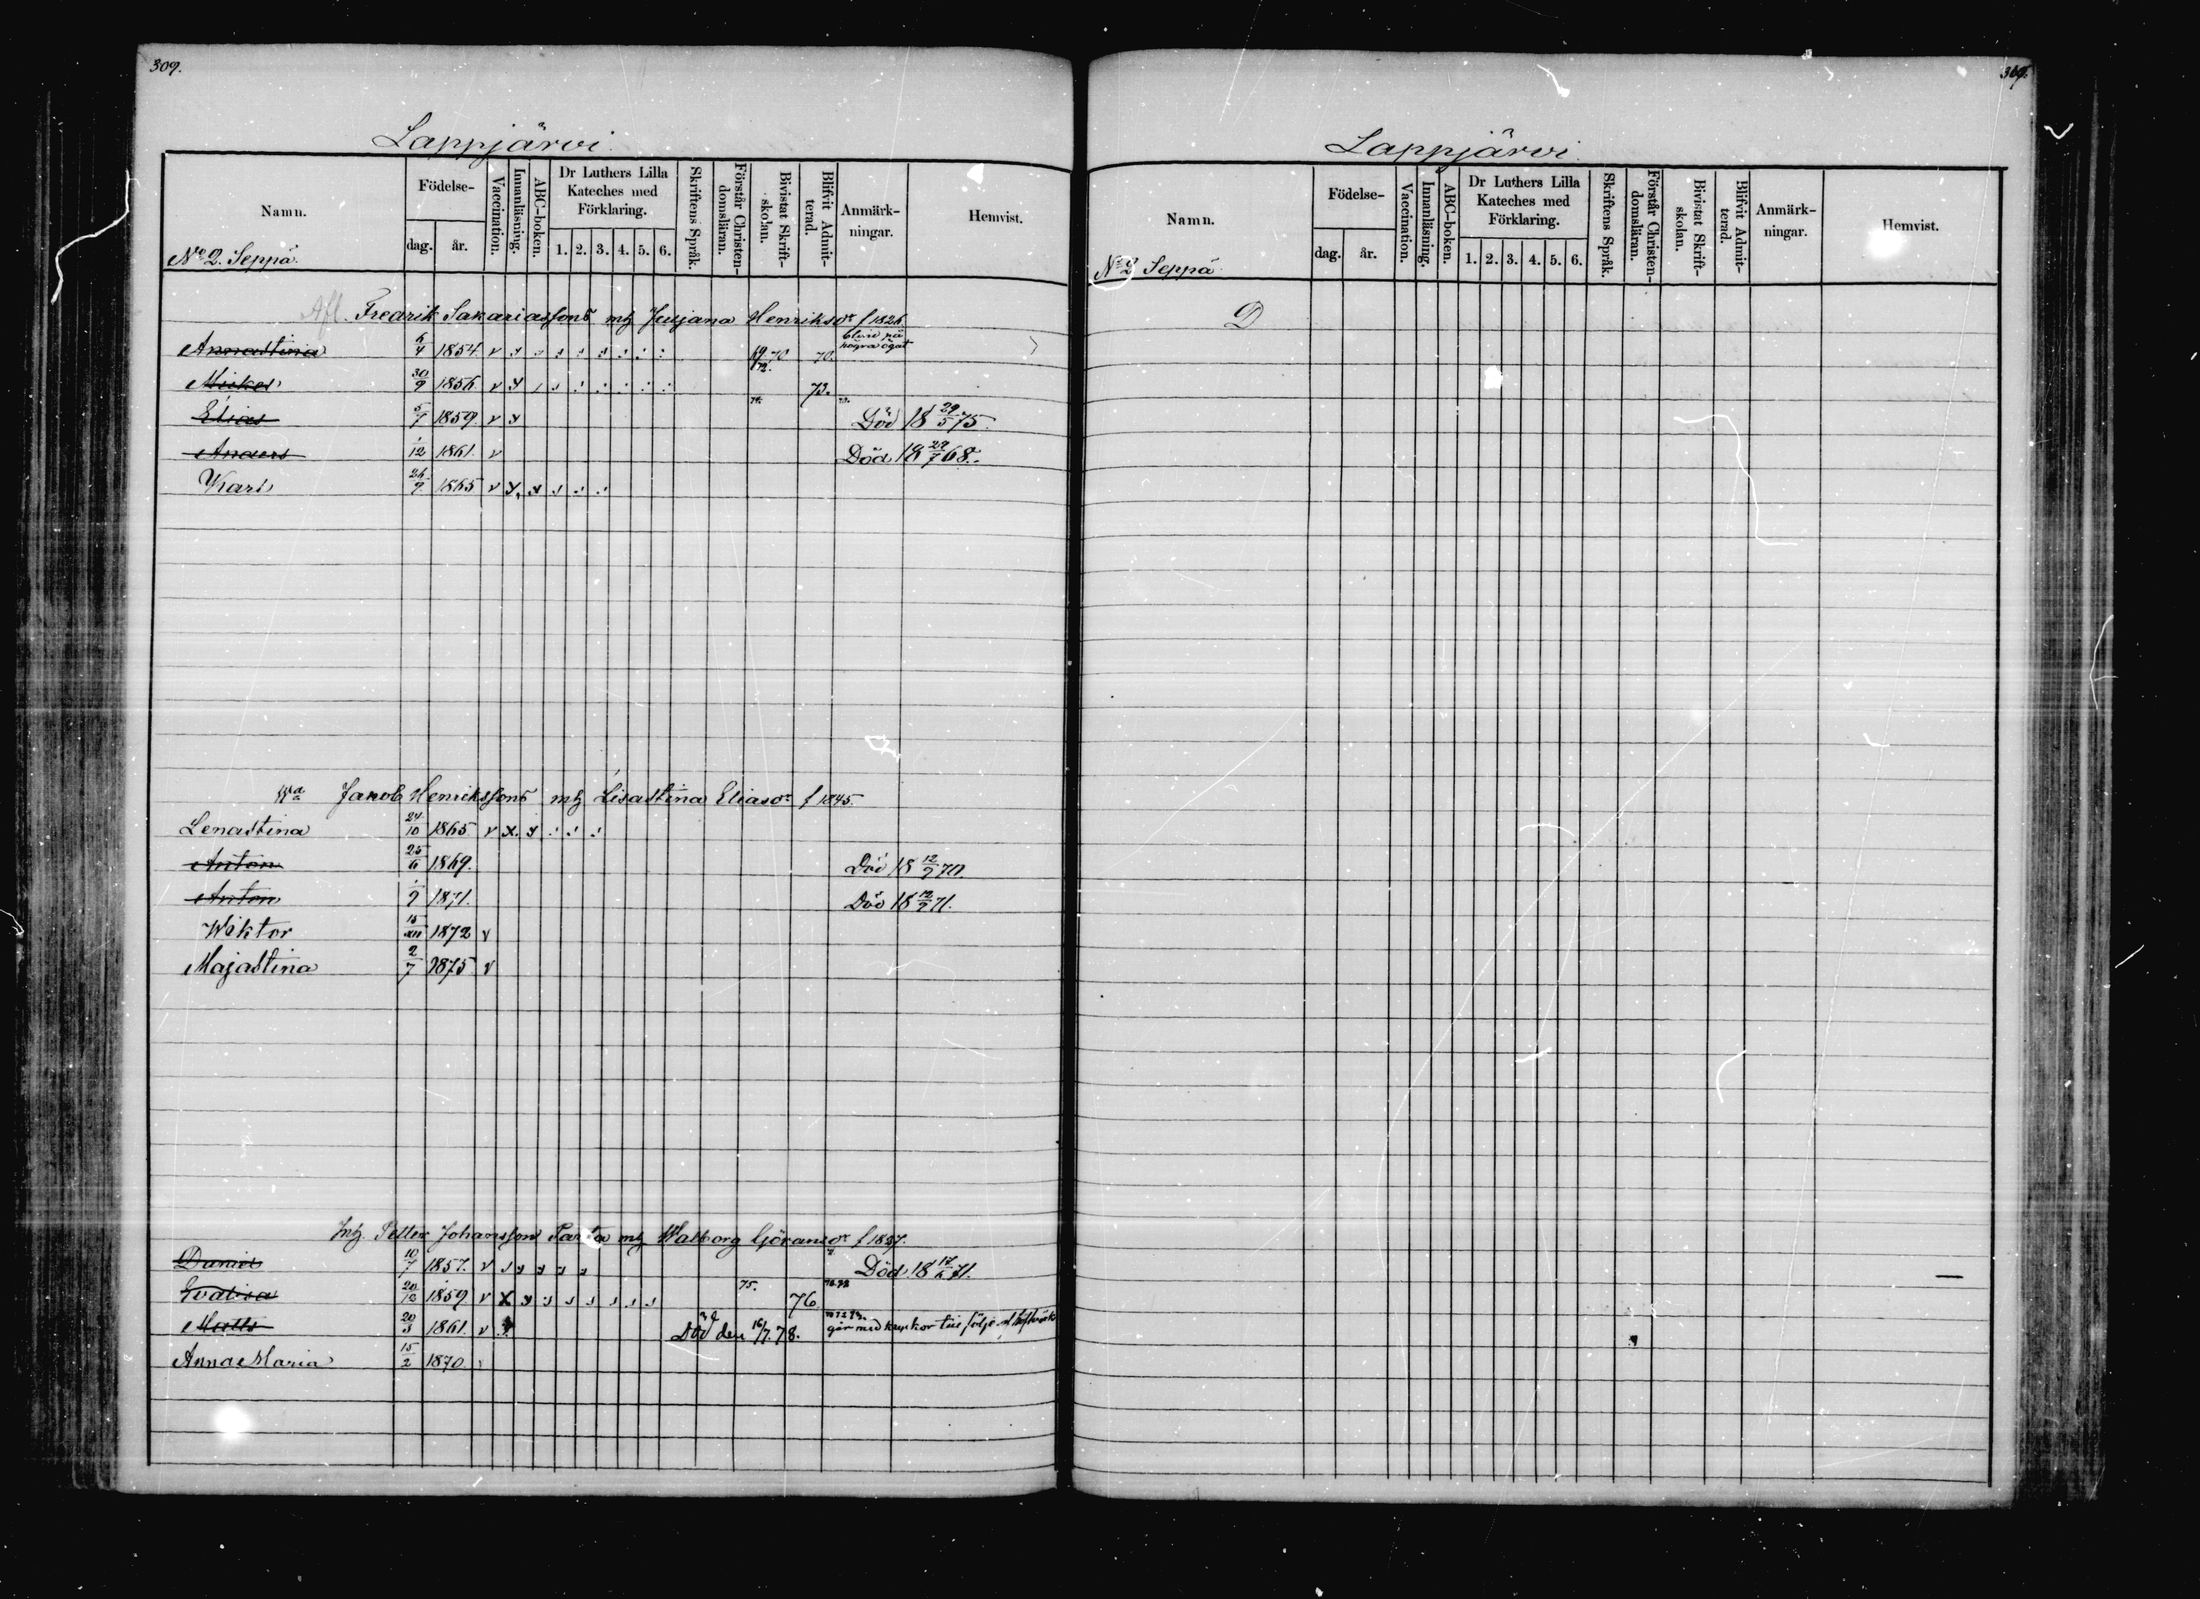 309.
Lappjärvi.
Namn.
Födelse-
dag.
år.
Vaccination.
Innanläsning.
ABC-boken.
Dr Luthers Lilla
Kateches med
Förklaring.
1. 2. 3. 4. 5. 6.
Skriftens Språk.
Förstår Christen-
domsläran.
Bivistat Skrift-
skolan.
Blifvit Admit-
terad.
Anmärk-
ningar.
Hemvist.
No 2. Seppä.
Afl. Fredrik Sakariassons mtz Juljana Henriksdr f 1826.
Annastina 6/4 1854. v 70. 70. högra ögat
Mickel 30/9 1856 v 72. 73.
Elias 5/7 1859. v Död 18 29/5 75.
Anders 1/12 1861. v Död 18 29/7 68.
Karl 26/9 1865 v
Jakob Henrikssons mtz Lisastina Eliasdr f 1845.
Lenastina 24/10 1865 v
Anton 25/6 1869. Död 18 12/9 70.
Anton 1/9 1871. Död 18 12/9 71.
Wiktor 15/XII 1872 v
Majastina 2/7 1875 v
Inh. Petter Johansson mtz Walborg Göransdr f 1827.
Daniel 10/7 1857. v Död 18 17/6 71.
Evalisa 20/12 1859 v 75. 76.
Matts 20/3 1861. v Död den 16/7. 78. går med kryckor till följe af
Anna Maria 15/2 1870.
309.
Lappjärvi.
Namn.
Födelse-
dag.
år.
Vaccination.
Innanläsning.
ABC-boken.
Dr Luthers Lilla
Kateches med
Förklaring.
1. 2. 3. 4. 5. 6.
Skriftens Språk.
Förstår Christen-
domsläran.
Bivistat Skrift-
skolan.
Blifvit Admit-
terad.
Anmärk-
ningar.
Hemvist.
No 2 Seppä
D